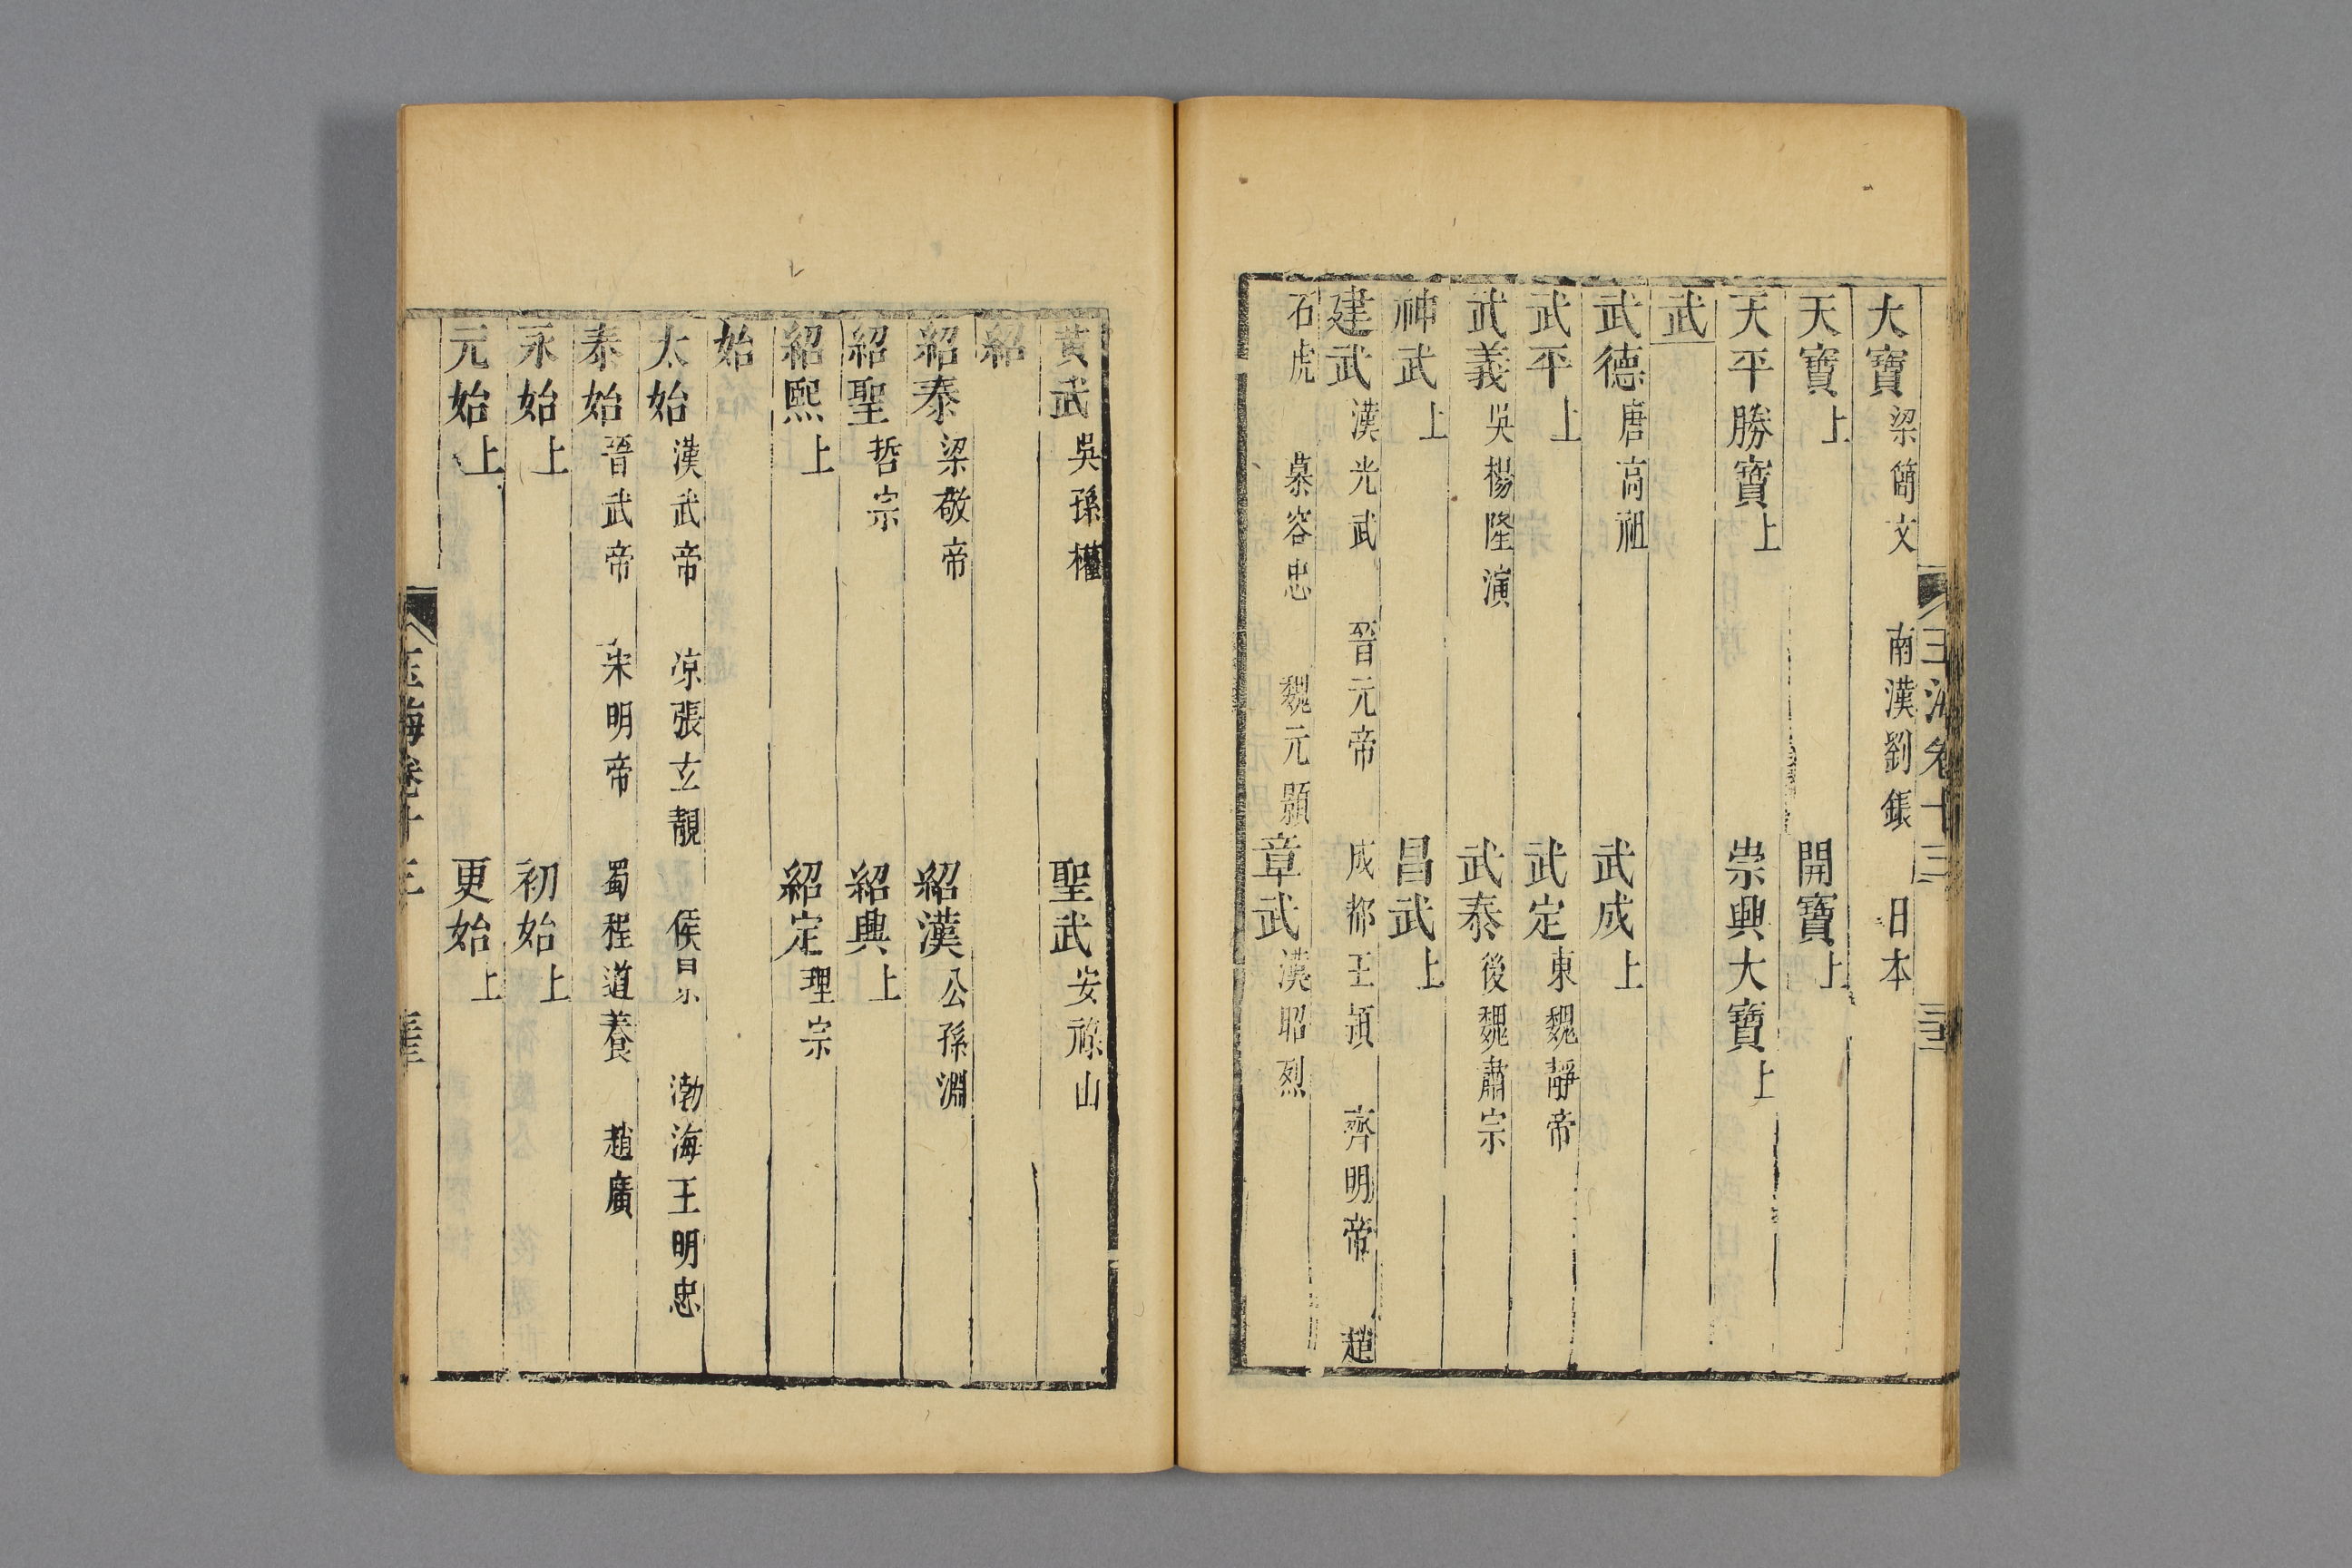 大寶 梁簡文 南漢劉鋹 日本
天寶上 開寶上
天平勝寶上 崇興大寶上
武
武德 唐高祖 武成上
武平上 武定 東魏靜帝
武義 吳楊隆演 武泰 後魏肅宗
神武上 昌武上
建武 漢光武 晉元帝 成都王頴 齊明帝 趙
石虎 慕容忠 魏元顥 章武 漢昭烈
黃武 吳孫權 聖武 安祿山
紹
紹泰 梁敬帝 紹漢 公孫淵
紹聖 哲宗 紹興上
紹熙上 紹定 理宗
始
太始 漢武帝 凉張玄靚 侯景 渤海王明忠
泰始 晉武帝 宋明帝 蜀程道養 趙廣
永始上 初始上
元始上 更始上
玉海卷十三